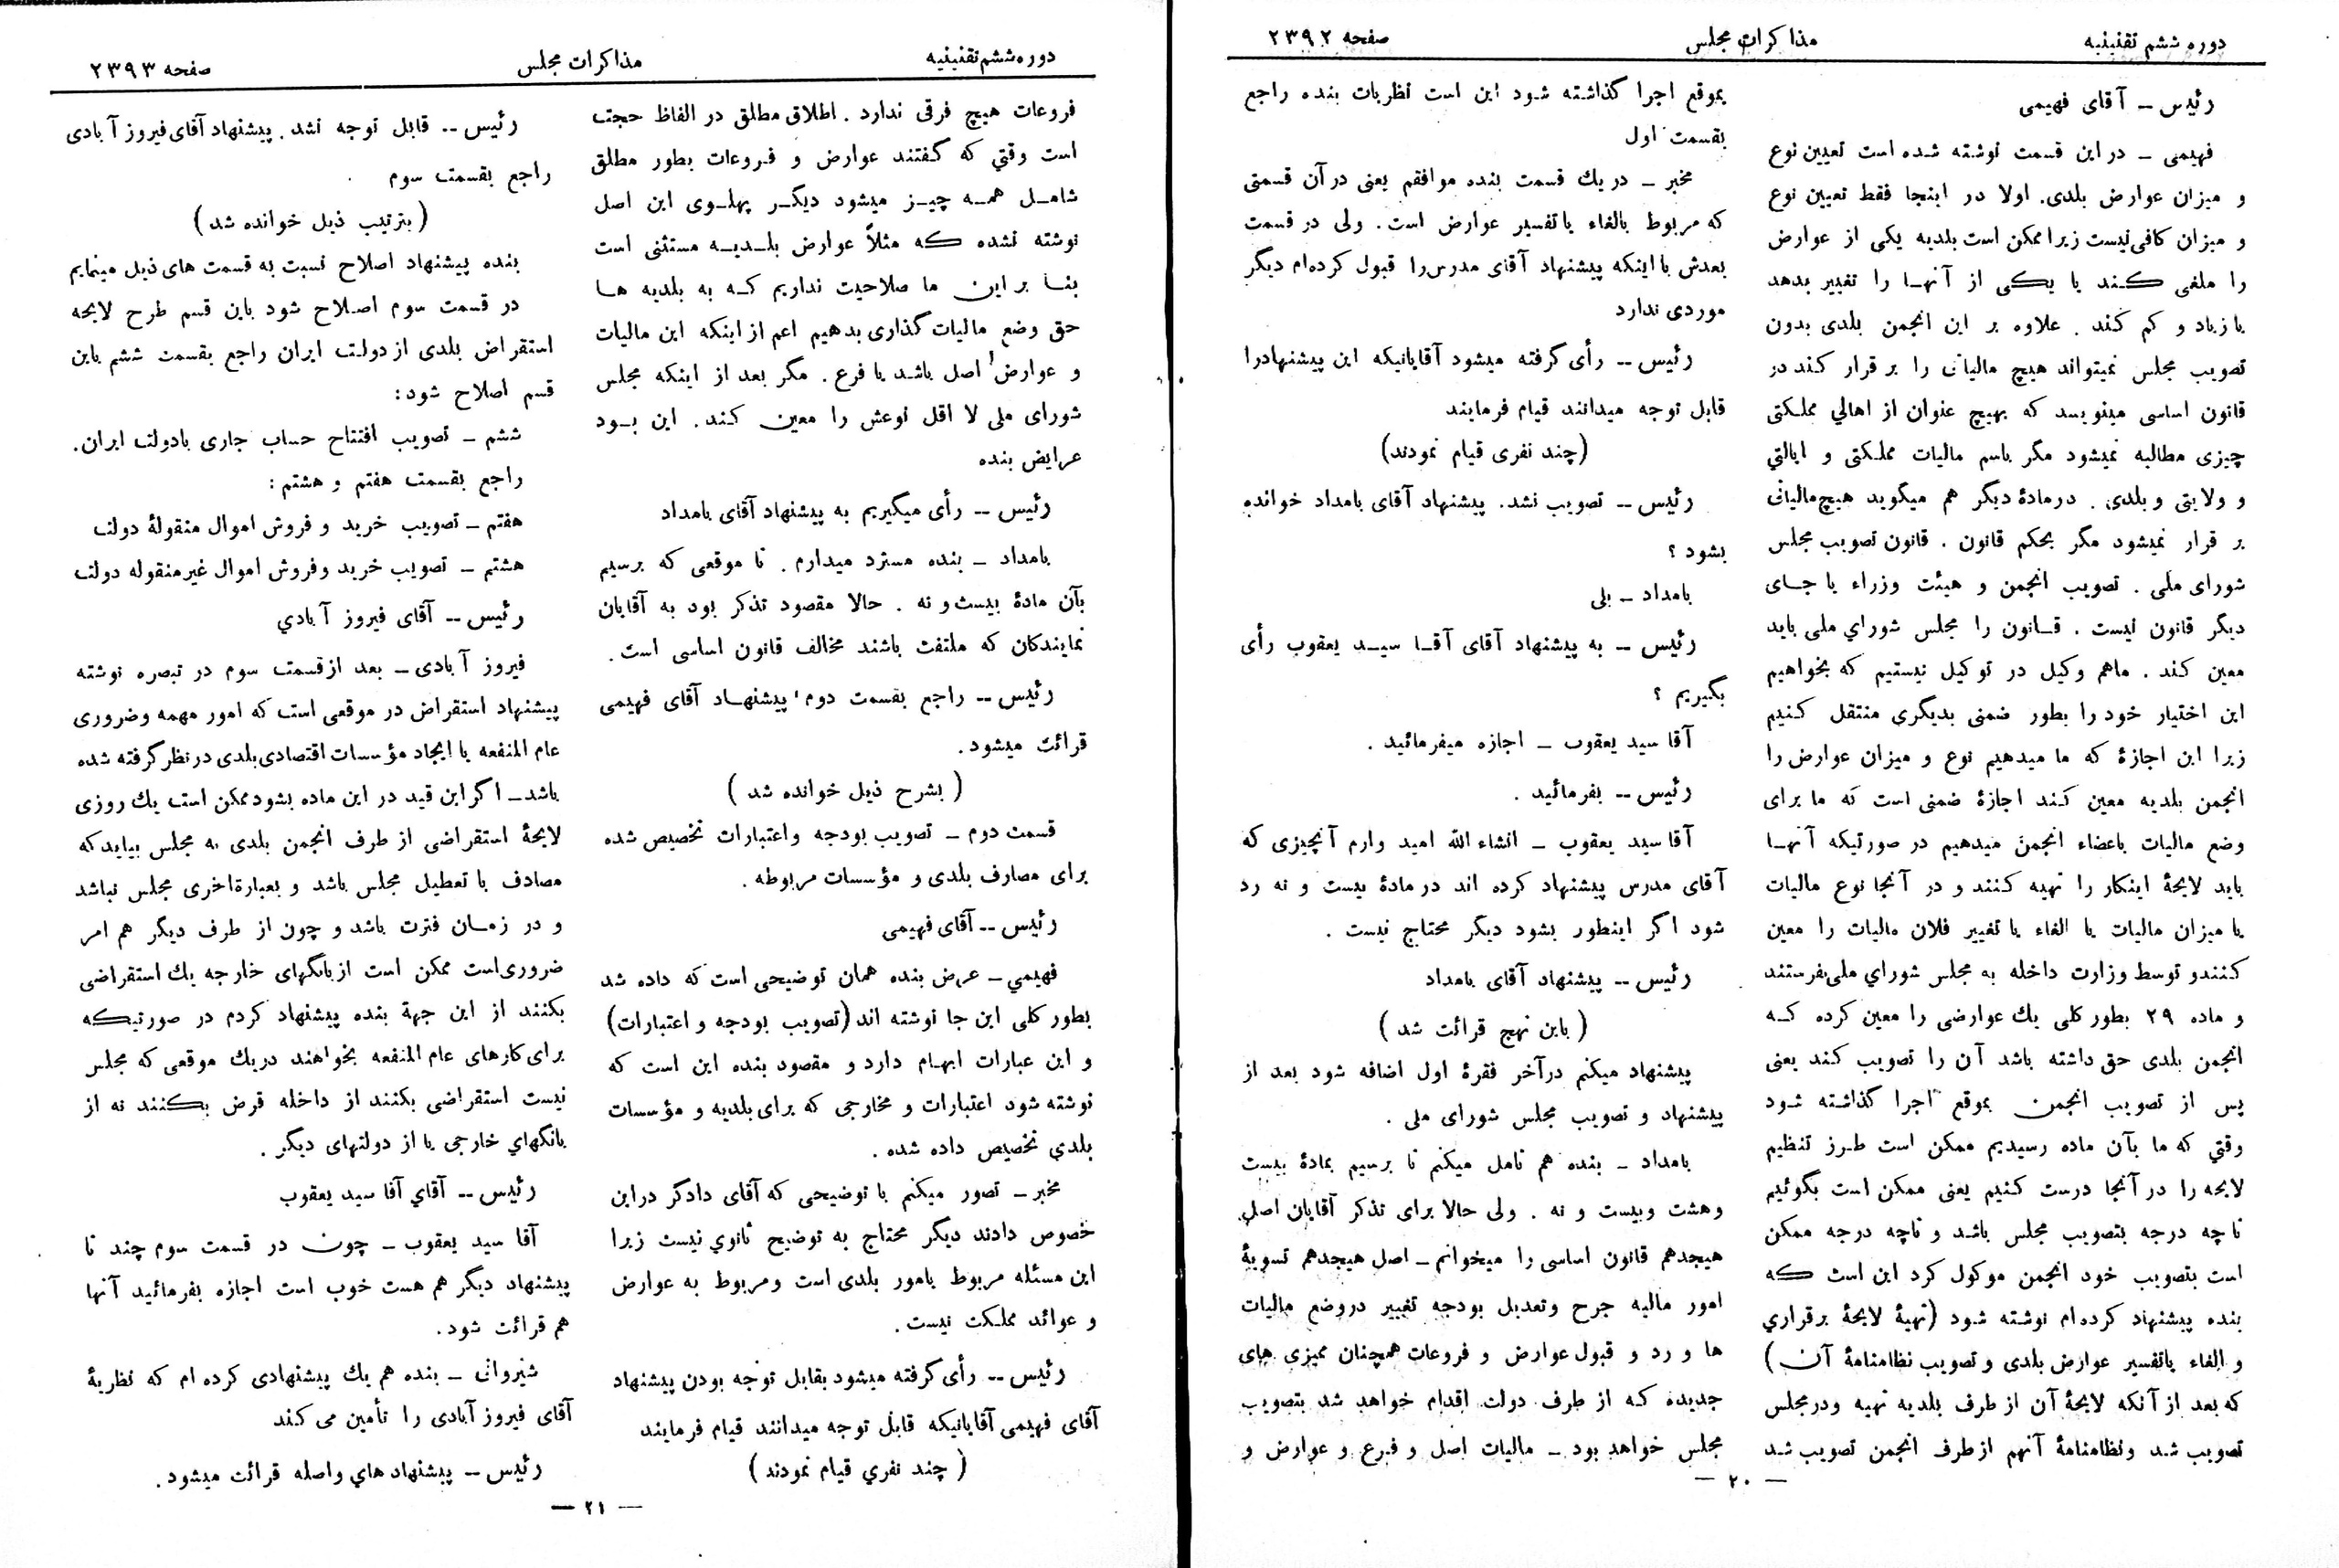 دوره ششم تقنینیه
مذاکرات مجلس
صفحه ۲۳۹۲
رئیس ـ آقای فهیمی
فهیمی ـ در این قسمت نوشته شده است تعیین نوع
و میزان عوارض بلدی. اولا در اینجا فقط تعیین نوع
و میزان کافی نیست زیرا ممکن است بلدیه یکی از عوارض
را ملغی کند یا یکی از آنها را تغییر بدهد
یا زیاد و کم کند . علاوه بر این انجمن بلدی بدون
تصویب مجلس نمیتواند هیچ مالیاتی را بر قرار کند در
قانون اساسی مینویسد که بهیچ عنوان از اهالي مملکتی
چیزی مطالبه نمیشود مگر باسم مالیات مملکتی و ایالتي
و ولایتی و بلدی . در مادهٔ دیگر هم میگوید هیچ مالیاتی
بر قرار نمیشود مگر بحکم قانون . قانون تصویب مجلس
شورای ملی . تصویب انجمن و هیئت وزراء یا جای
دیگر قانون نیست . قانون را مجلس شورای ملی باید
معین کند . ماهم وکیل در توکیل نیستیم که بخواهیم
این اختیار خود را بطور ضمنی بدیگری منتقل کنیم
زیرا این اجازهٔ که ما میدهیم نوع و میزان عوارض را
انجمن بلدیه معین کند اجازهٔ ضمنی است که ما برای
وضع مالیات باعضاء انجمن میدهیم در صورتیکه آنها
باید لایحهٔ اینکار را تهیه کنند و در آنجا نوع مالیات
یا میزان مالیات یا الغاء یا تغییر فلان مالیات را معین
کنند و توسط وزارت داخله به مجلس شورای ملی بفرستند
و ماده ۲۹ بطور کلی یك عوارضی را معین کرده که
انجمن بلدی حق داشته باشد آن را تصویب کند یعنی
پس از تصویب انجمن بموقع اجرا گذاشته شود
وقتي که ما بآن ماده رسیدیم ممکن است طرز تنظیم
لایحه را در آنجا درست کنیم یعنی ممکن است بگوئیم
تا چه درجه بتصویب مجلس باشد و تاچه درجه ممکن
است بتصویب خود انجمن موکول کرد این است که
بنده پیشنهاد کرده‌ام نوشته شود (تهیهٔ لایحهٔ برقراري
و الغاء یا تفسیر عوارض بلدی و تصویب نظامنامهٔ آن )
که بعد از آنکه لایحهٔ آن از طرف بلدیه تهیه و در مجلس
تصویب شد و نظامنامهٔ آنهم از طرف انجمن تصویب شد
بموقع اجرا گذاشته شود این است نظریات بنده راجع
بقسمت اول
مخبر ـ در یك قسمت بنده موافقم یعنی در آن قسمتی
که مربوط بالغاء یا تفسیر عوارض است. ولی در قسمت
بعدش با اینکه پیشنهاد آقای مدرس را قبول کرده‌ام دیگر
موردی ندارد
رئیس -- رأی گرفته میشود آقایانیکه این پیشنهاد را
قابل توجه میدانند قیام فرمایند
(چند نفری قیام نمودند)
رئیس -- تصویب نشد. پیشنهاد آقای بامداد خوانده
بشود ؟
بامداد ـ بلی
رئیس -- به پیشنهاد آقای آقا سید یعقوب رأی
بگیریم ؟
آقا سید یعقوب ـ اجازه میفرمائید .
رئیس -- بفرمائید .
آقا سید یعقوب ـ انشاء الله امید وارم آنچیزی که
آقای مدرس پیشنهاد کرده اند در مادهٔ بیست و نه رد
شود اگر اینطور بشود دیگر محتاج نیست .
رئیس -- پیشنهاد آقای بامداد
( باین نهج قرائت شد )
پیشنهاد میکنم در آخر فقرهٔ اول اضافه شود بعد از
پیشنهاد و تصویب مجلس شورای ملی .
بامداد ـ بنده هم تامل میکنم تا برسیم بمادهٔ بیست
و هشت و بیست و نه . ولی حالا برای تذکر آقایان اصل
هیجدهم قانون اساسی را میخوانم ـ اصل هیجدهم تسویهٔ
امور مالیه جرح و تعدیل بودجه تغییر در وضع مالیات
ها و رد و قبول عوارض و فروعات همچنان ممیزی های
جدیده که از طرف دولت اقدام خواهد شد بتصویب
مجلس خواهد بود ـ مالیات اصل و فرع و عوارض و
— ۲۰ —
دوره ششم تقنینیه
مذاکرات مجلس
صفحه ۲۳۹۳
فروعات هیچ فرقی ندارد . اطلاق مطلق در الفاظ حجت
است وقتي که گفتند عوارض و فروعات بطور مطلق
شامل همه چیز میشود دیگر پهلوی این اصل
نوشته نشده که مثلاً عوارض بلدیه مستثنی است
بنا بر این ما صلاحیت نداریم که به بلدیه ها
حق وضع مالیات گذاری بدهیم اعم از اینکه این مالیات
و عوارض اصل باشد یا فرع . مگر بعد از اینکه مجلس
شورای ملی لا اقل نوعش را معین کند . این بود
عرایض بنده
رئیس -- رأی میگیریم به پیشنهاد آقای بامداد
بامداد ـ بنده مسترد میدارم . تا موقعی که برسیم
بآن مادهٔ بیست و نه . حالا مقصود تذکر بود به آقایان
نمایندکان که ملتفت باشند مخالف قانون اساسی است .
رئیس -- راجع بقسمت دوم پیشنهاد آقای فهیمی
قرائت میشود .
( بشرح ذیل خوانده شد )
قسمت دوم ـ تصویب بودجه و اعتبارات تخصیص شده
برای مصارف بلدی و مؤسسات مربوطه .
رئیس -- آقای فهیمی
فهیمي ـ عرض بنده همان توضیحی است که داده شد
بطور کلی این جا نوشته اند (تصویب بودجه و اعتبارات)
و این عبارات ابهام دارد و مقصود بنده این است که
نوشته شود اعتبارات و مخارجی که برای بلدیه و مؤسسات
بلدي تخصیص داده شده .
مخبر ـ تصور میکنم با توضیحی که آقای دادگر در این
خصوص دادند دیگر محتاج به توضیح ثانوي نیست زیرا
این مسئله مربوط بامور بلدی است و مربوط به عوارض
و عوائد مملکت نیست .
رئیس -- رأی گرفته میشود بقابل توجه بودن پیشنهاد
آقای فهیمی آقایانیکه قابل توجه میدانند قیام فرمایند
( چند نفري قیام نمودند )
رئیس -- قابل توجه نشد . پیشنهاد آقای فیروز آبادی
راجع بقسمت سوم
( بترتیب ذیل خوانده شد )
بنده پیشنهاد اصلاح نسبت به قسمت های ذیل مینمایم
در قسمت سوم اصلاح شود باین قسم طرح لایحه
استقراض بلدی از دولت ایران راجع بقسمت ششم باین
قسم اصلاح شود :
ششم ـ تصویب افتتاح حساب جاری بادولت ایران.
راجع بقسمت هفتم و هشتم :
هفتم ـ تصویب خرید و فروش اموال منقولهٔ دولت
هشتم ـ تصویب خرید و فروش اموال غیرمنقوله دولت
رئیس -- آقای فیروز آبادي
فیروز آبادی ـ بعد از قسمت سوم در تبصره نوشته
پیشنهاد استقراض در موقعی است که امور مهمه و ضروری
عام المنفعه یا ایجاد مؤسسات اقتصادی بلدی در نظر گرفته شده
باشد ـ اگر این قید در این ماده بشود ممکن است یك روزی
لایحهٔ استقراضی از طرف انجمن بلدی به مجلس بیاید که
مصادف با تعطیل مجلس باشد و بعبارة اخری مجلس نباشد
و در زمان فترت باشد و چون از طرف دیگر هم امر
ضروری است ممکن است از بانگهای خارجه یك استقراضی
بکنند از این جهة بنده پیشنهاد کردم در صورتیکه
برای کارهای عام المنفعه بخواهند در یك موقعی که مجلس
نیست استقراضی بکنند از داخله قرض بکنند نه از
بانگهاي خارجی یا از دولتهای دیگر .
رئیس -- آقاي آقا سید یعقوب
آقا سید یعقوب ـ چون در قسمت سوم چند تا
پیشنهاد دیگر هم هست خوب است اجازه بفرمائید آنها
هم قرائت شود.
شیروانی ـ بنده هم یك پیشنهادی کرده ام که نظریهٔ
آقای فیروز آبادی را تأمین می کند
رئیس -- پیشنهاد هاي واصله قرائت میشود .
— ۲۱ —